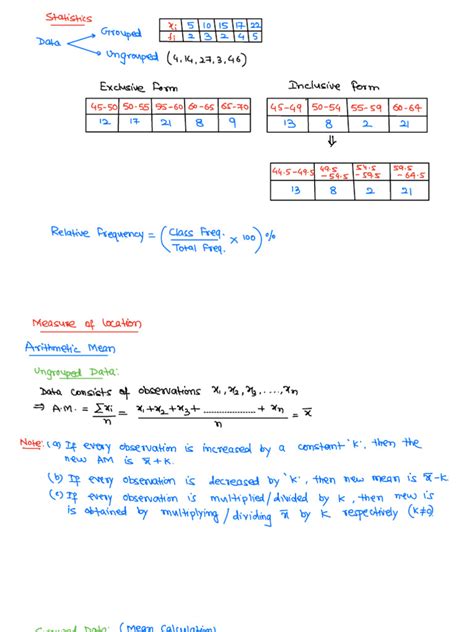 Statistics
Data
Grouped
xi 5 10 15 17 22
fi 2 3 2 4 5
Ungrouped (4, 14, 27, 3, 46)
Exclusive form
45-50 50-55 55-60 60-65 65-70
12 17 21 8 9
Inclusive form
45-49 50-54 55-59 60-64
13 8 2 21
⇓
44.5-49.5 49.5-54.5 54.5-59.5 59.5-64.5
13 8 2 21
Relative Frequency = (Class Freq. / Total Freq. × 100) %
Measure of location
Arithmetic Mean
Ungrouped Data:
Data consists of observations x₁, x₂, x₃, ...., xn
⇒ A.M. = Σxi / n = x₁ + x₂ + x₃ + .................. + xn / n = x̄
Note: (a) If every observation is increased by a constant 'k', then the
new AM is x̄ + k.
(b) If every observation is decreased by 'k', then new mean is x̄ - k
(c) If every observation is multiplied/divided by k, then new is
is obtained by multiplying/dividing x̄ by k respectively (k≠0)
Grouped Data: (Mean Calculation)